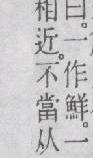 曰。一作鮮。一
相近。不當从